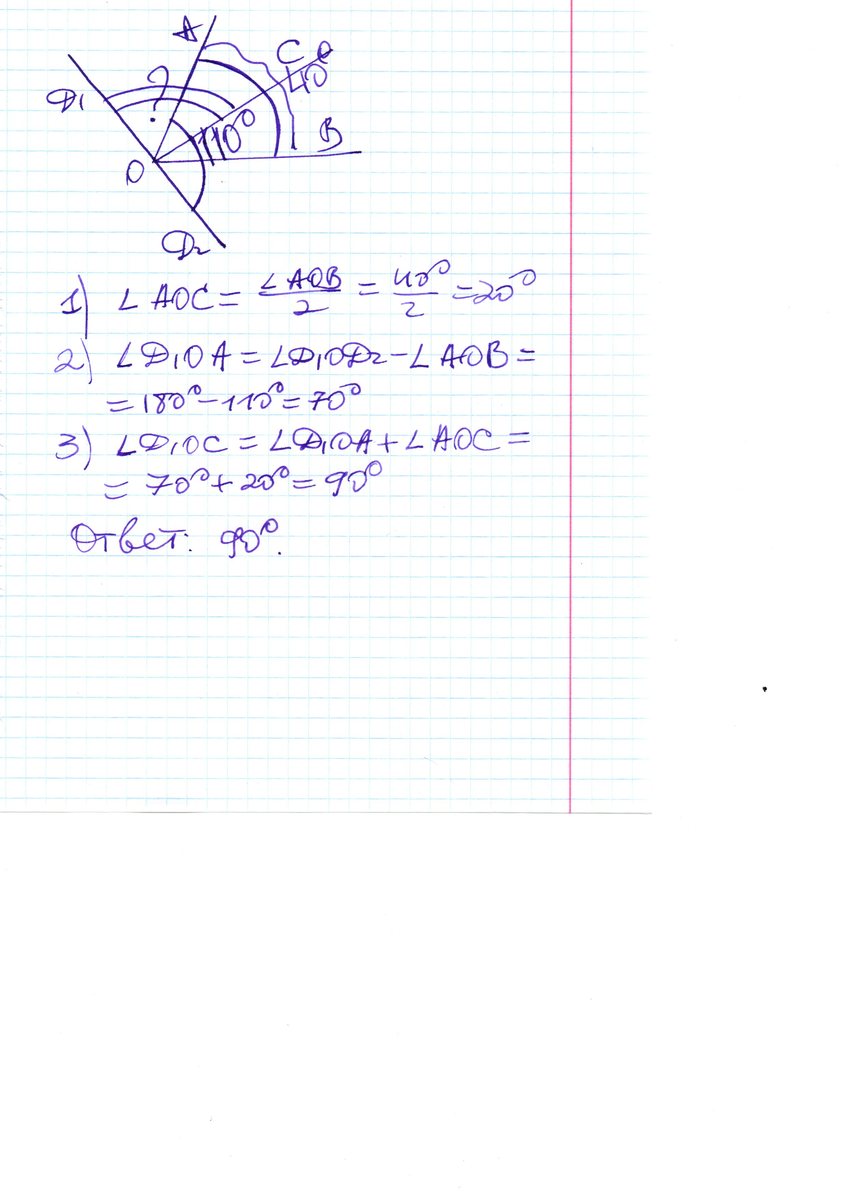 A
C
40°
D₁
?
110°
B
O
D₂
1) ∠AOC = ∠AOB/2 = 40°/2 = 20°
2) ∠D₁OA = ∠D₁OD₂ - ∠AOB =
= 180° - 110° = 70°
3) ∠D₁OC = ∠D₁OA + ∠AOC =
= 70° + 20° = 90°
Ответ: 90°.